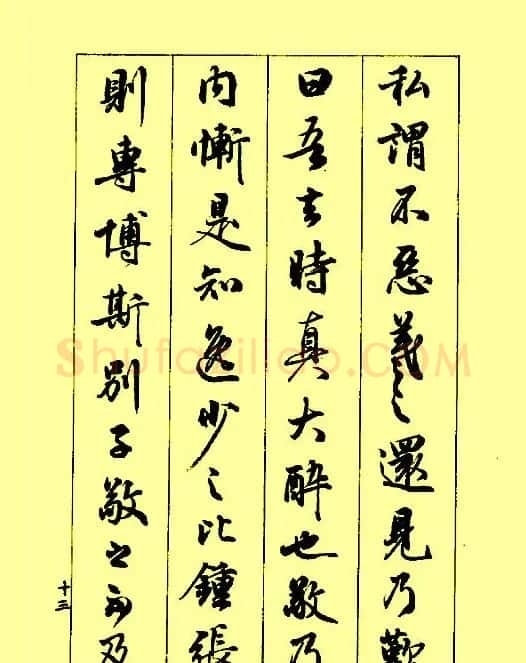 私謂不惡羲之還見乃歎
曰吾去時真大醉也敬乃
内慚是知逸少之比鍾張
則專博斯別子敬之不及
十三
Shufaziliao.COM